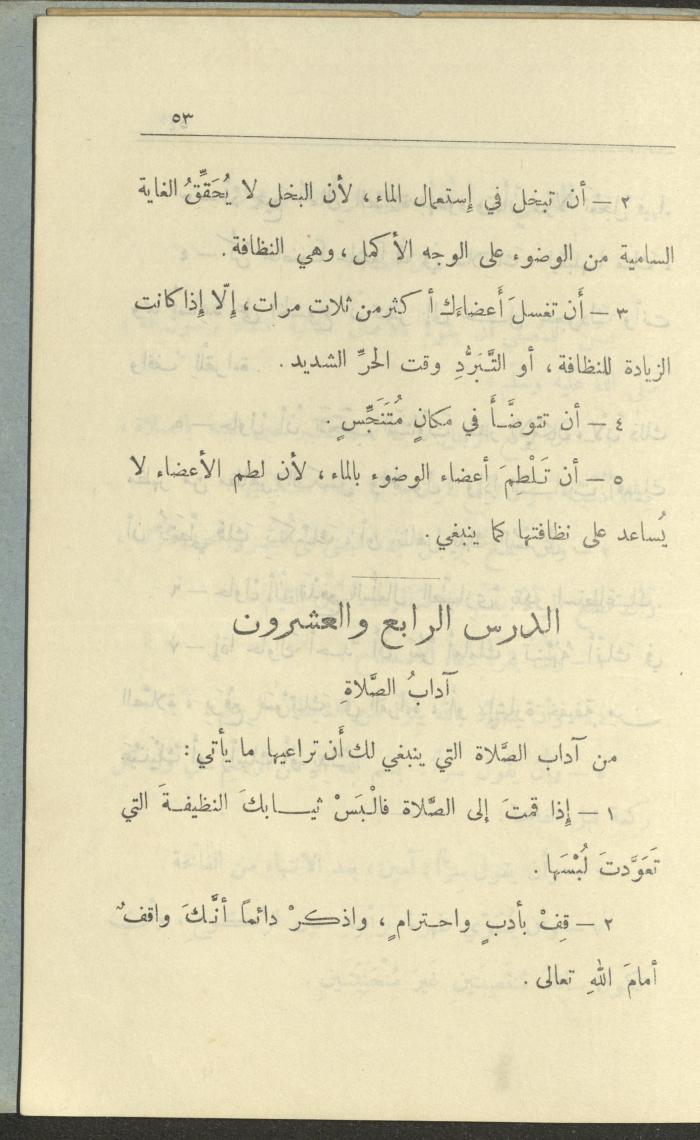 ٥٣
٢ – أن تبخل في إستعمال الماء، لأن البخل لا يُحَقِّقُ الغاية
السامية من الوضوء على الوجه الأكمل، وهي النظافة.
٣ – أَن تغسلَ أَعضاءَك أكثر من ثلاث مرات، إِلّا إِذا كانت
الزيادة للنظافة، أو التَّبَرُّدِ وقت الحرِّ الشديد.
٤ – أن تتوضَّأَ في مكانٍ مُتَنَجِّسٍ.
٥ – أن تَلْطِمَ أعضاء الوضوء بالماء، لأن لطم الأعضاء لا
يُساعد على نظافتها كما ينبغي.
الدرس الرابع والعشرون
آدابُ الصَّلاةِ
من آداب الصَّلاة التي ينبغي لك أَن تراعيها ما يأتي:
١ – إِذا قمتَ إلى الصَّلاة فالْبَسْ ثيـابكَ النظيفةَ التي
تَعَوَّدتَ لُبْسَها.
٢ – قِفْ بأدبٍ واحترامٍ، واذكرْ دائماً أنَّكَ واقفٌ
أمامَ اللهِ تعالى.